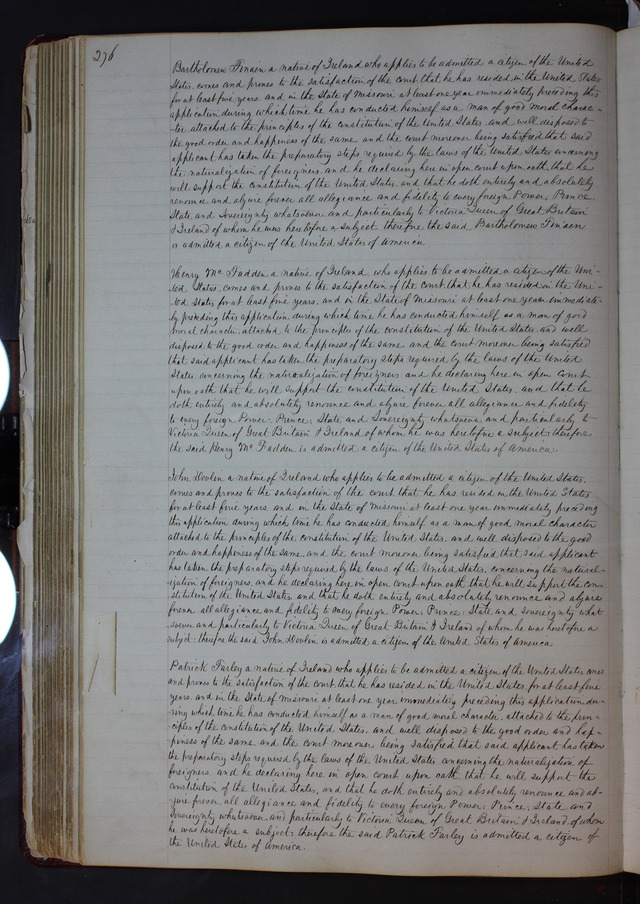 276
Bartholomew Finaen a native of Ireland who applies to be admitted a citizen of the United
States. comes and proves to the satisfaction of the court that he has resided in the United States
for at least five years and in the State of Missouri at least one year immediately preceding this
application during which time he has conducted himself as a man of good moral charac-
-ter attached to the principles of the constitution of the United States and well disposed to
the good order and happiness of the same and the court moreover being satisfied that said
applicant has taken the preparatory steps required by the laws of the United States concerning
the naturalization of foreigners and he declaring here in open court upon oath that he
will support the constitution of the United States, and that he doth entirely and absolutely
renounce and abjure forever all allegiance and fidelity to every foreign Power, Prince
State and Sovereignty whatsoever and particularly to Victoria Queen of Great Britain
& Ireland of whom he was heretofore a subject therefore the said Bartholomew Finaen
is admitted a citizen of the United States of America
Henry Mc Fadden a native of Ireland who applies to be admitted a citizen of the Uni-
-ted States, comes and proves to the satisfaction of the court that he has resided in the Uni-
-ted States for at least five years, and in the State of Missouri at least one year immediate-
ly preceding this application during which time he has conducted himself as a man of good
moral character attached to the principles of the constitution of the United States and well
disposed to the good order and happiness of the same and the court moreover being satisfied
that said applicant has taken the preparatory steps required by the laws of the United
States concerning the naturalization of foreigners and he declaring here in open court
upon oath that he will support the constitution of the United States, and that he
doth entirely and absolutely renounce and abjure forever all allegiance and fidelity
to every foreign Power, Prince, State and Sovereignty whatsoever and particularly to
Victoria Queen of Great Britain & Ireland of whom he was heretofore a subject: therefore
the said Henry Mc Fadden is admitted a citizen of the United States of America.
John Devlin a native of Ireland who applies to be admitted a citizen of the United States.
comes and proves to the satisfaction of the court that he has resided in the United States
for at least five years and in the State of Missouri at least one year immediately preceding
this application during which time he has conducted himself as a man of good moral character
attached to the principles of the constitution of the United States. and well disposed to the good
order and happiness of the same and the court moreover being satisfied that said applicant
has taken the preparatory steps required by the laws of the United States concerning the natural-
-ization of foreigners, and he declaring here in open court upon oath that he will support the con-
stitution of the United States and that he doth entirely and absolutely renounce and abjure
forever all allegiance and fidelity to every foreign Power, Prince, State and sovereignty what
soever and particularly to Victoria Queen of Great Britain & Ireland of whom he was heretofore a
subject: therefore the said John Devlin is admitted a citizen of the United States of America
Patrick Farley a native of Ireland who applies to be admitted a citizen of the United States comes
and proves to the satisfaction of the court that he has resided in the United States for at least five
years. and in the State of Missouri at least one year immediately preceding this application du-
ring which time he has conducted himself as a man of good moral character attached to the prin-
ciples of the constitution of the United States. and well disposed to the good order and hap-
-piness of the same and the court moreover being satisfied that said applicant has taken
the preparatory steps required by the laws of the United States concerning the naturalization of
foreigners and he declaring here in open court upon oath that he will support the
constitution of the United States, and that he doth entirely and absolutely renounce and ab-
jure forever all allegiance and fidelity to every foreign Power, Prince, State and
Sovereignty whatsoever and particularly to Victoria Queen of Great Britain & Ireland of whom
he was heretofore a subject; therefore the said Patrick Farley is admitted a citizen of
the United States of America.